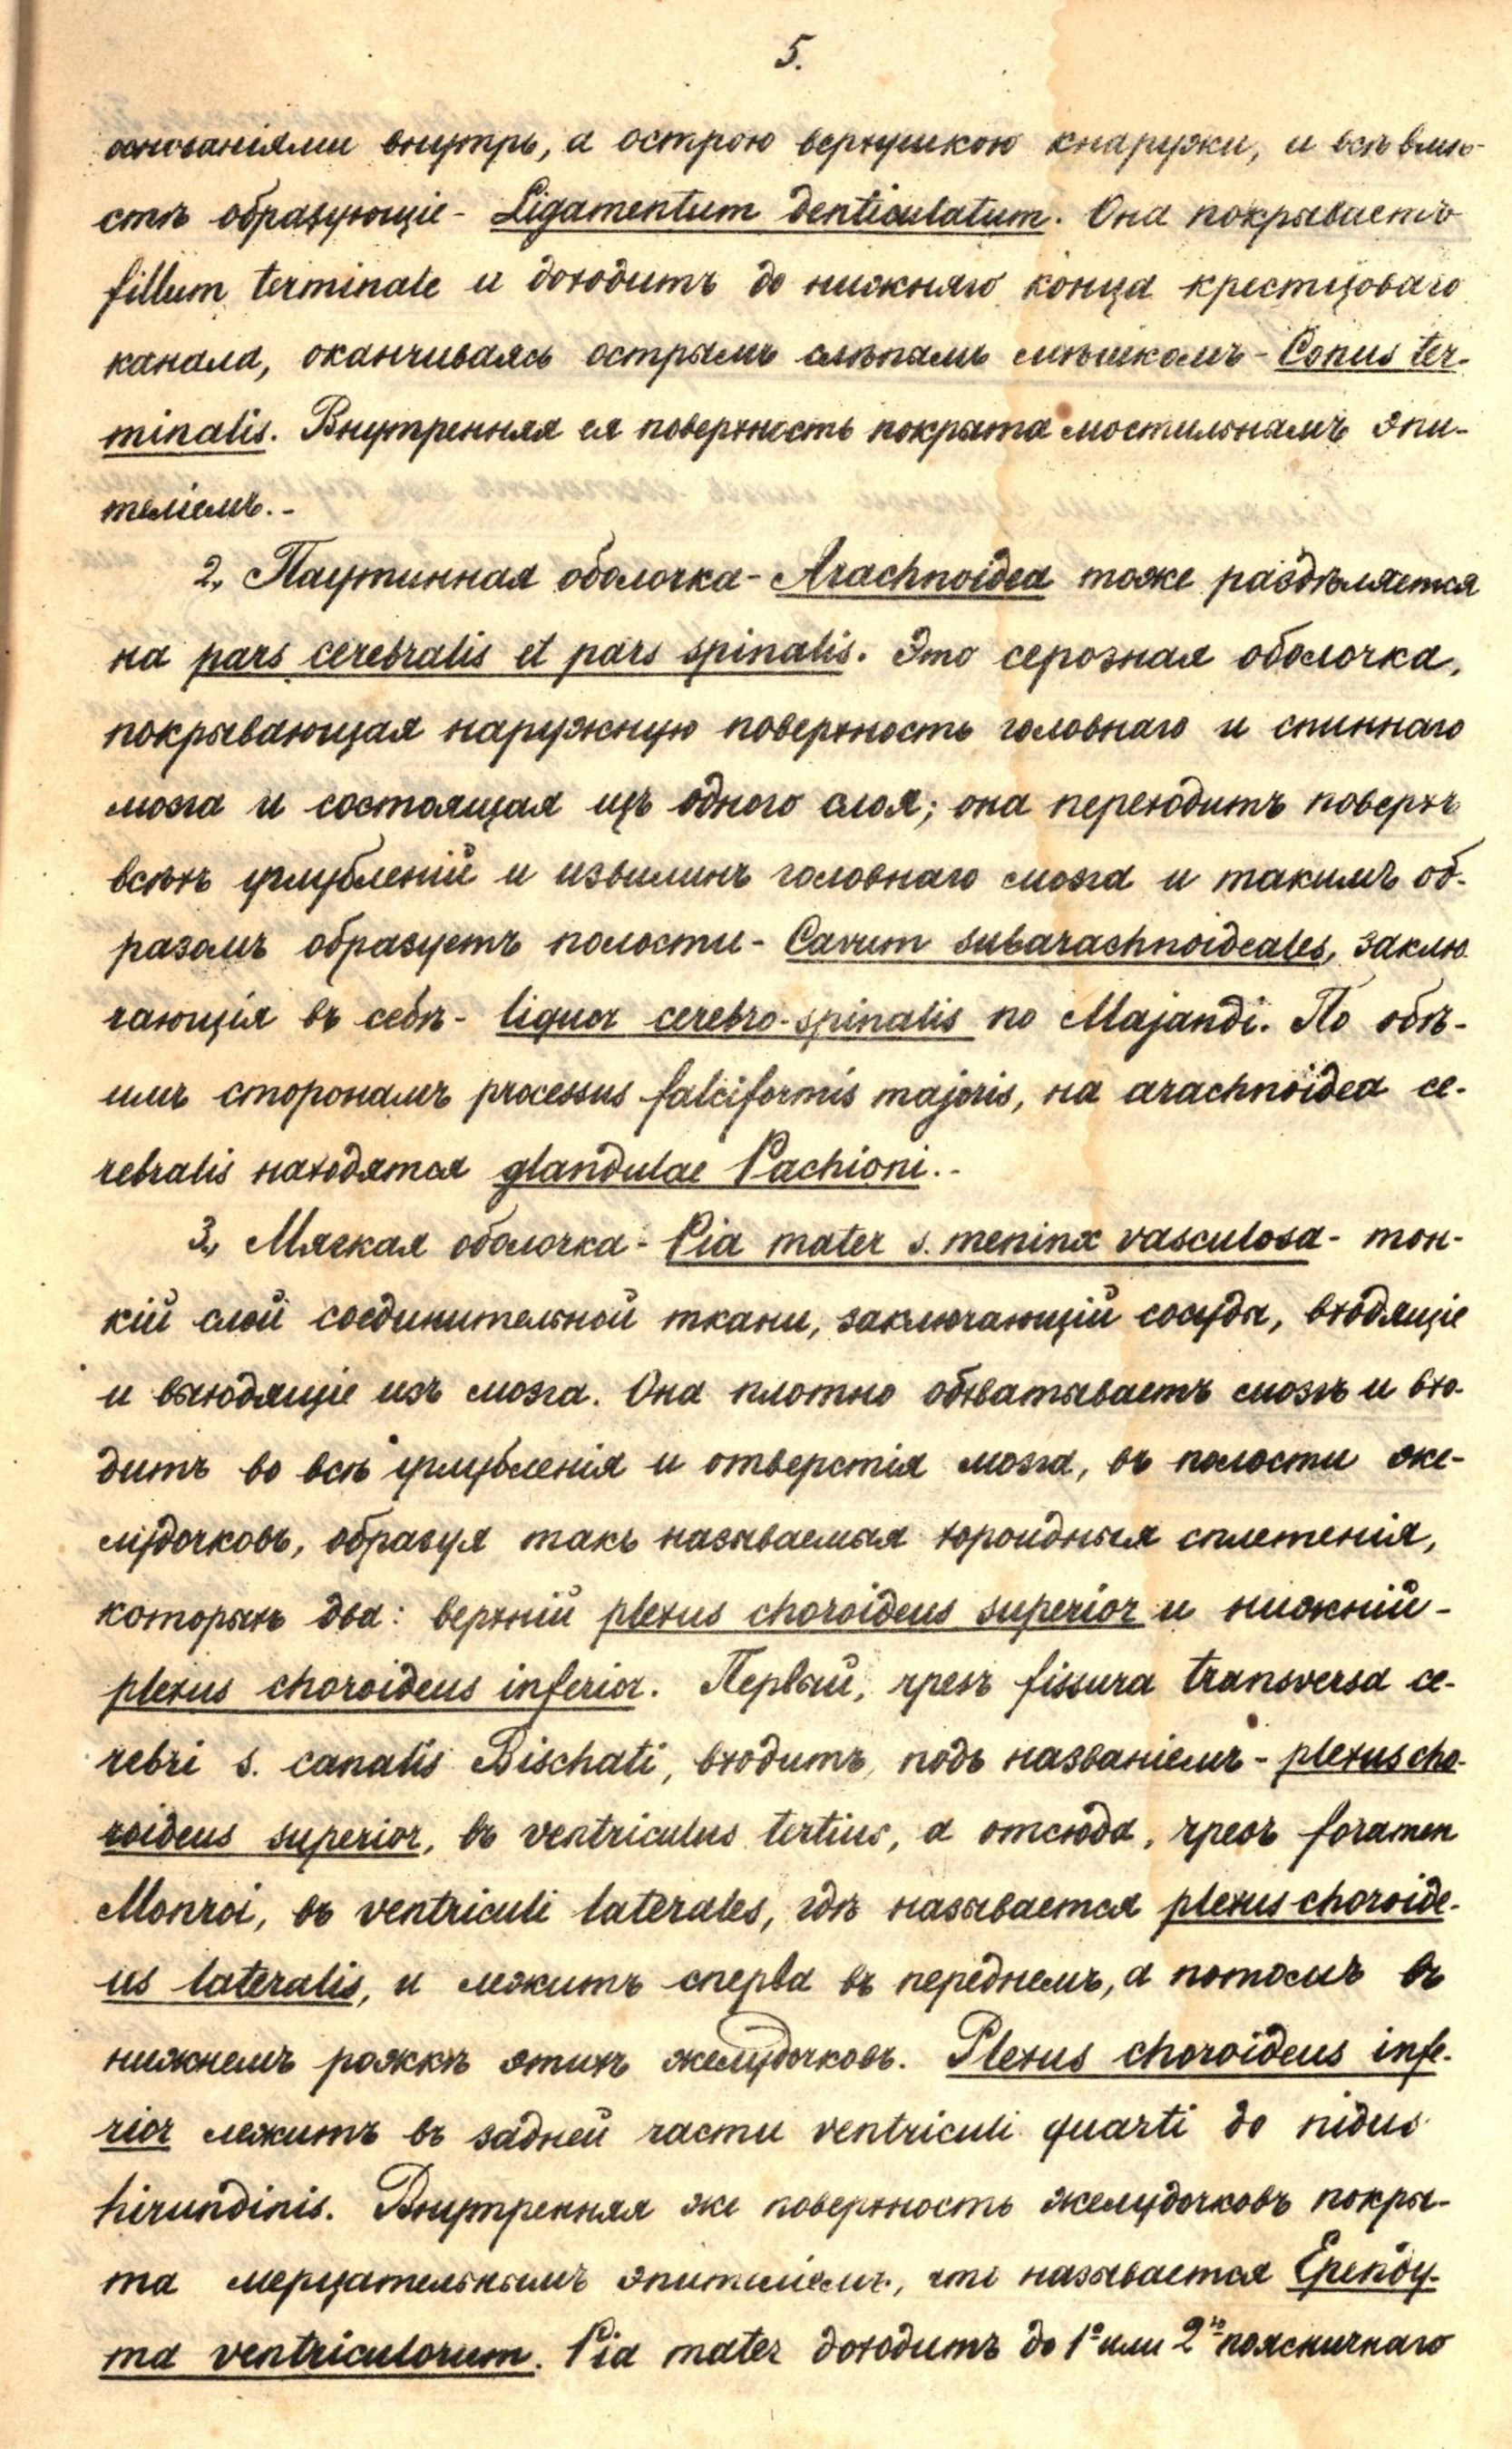 5.
основаніями внутрь, а острою верхушкою кнаружи, и всѣ вмѣ-
стѣ образующіе - Ligamentum denticulatum. Она покрываетъ
fillum terminale и доходитъ до нижняго конца крестцоваго
канала, оканчиваясь острымъ слѣпымъ мѣшкомъ - Conus ter-
minalis. Внутренняя ея поверхность покрыта мостильнымъ эпи-
теліемъ.-
2, Паутинная оболочка - Arachnoidea тоже раздѣляется
на pars cerebralis et pars spinalis. Это серозная оболочка,
покрывающая наружную поверхность головнаго и спиннаго
мозга и состоящая изъ одного слоя; она переходитъ поверхъ
всѣхъ углубленій и извилинъ головнаго мозга и такимъ об-
разомъ образуетъ полости - Cavum subarachnoideales, заклю
чающія въ себѣ - liquor cerebro-spinalis по Majandi. По обѣ-
имъ сторонамъ processus falciformis majoris, на arachnoidea ce-
rebralis находятся glandulae Pachioni.-
3, Мягкая оболочка - Pia mater s. meninx vasculosa - тон-
кій слой соединительной ткани, заключающій сосуды, входящіе
и выходящіе изъ мозга. Она плотно обхватываетъ мозгъ и вхо-
дитъ во всѣ углубленія и отверстія мозга, въ полости же-
лудочковъ, образуя такъ называемыя хороидныя сплетенія,
которыхъ два: верхній plexus choroideus superior и нижній -
plexus choroideus inferior. Первый, чрезъ fissura transversa ce-
rebri s. canalis Bischati, входитъ, подъ названіемъ - plexus cho-
roideus superior, въ ventriculus tertius, а отсюда, чрезъ foramen
Monroi, въ ventriculi laterales, гдѣ называется plexus choroide-
us lateralis, и лежитъ сперва въ переднемъ, а потомъ въ
нижнемъ рожкѣ этихъ желудочковъ. Plexus choroideus infe-
rior лежитъ въ задней части ventriculi quarti до nidus
hirundinis. Внутренняя же поверхность желудочковъ покры-
та мерцательнымъ эпителіемъ, что называется Ependy-
ma ventriculorum. Pia mater доходитъ до 1º или 2го поясничнаго